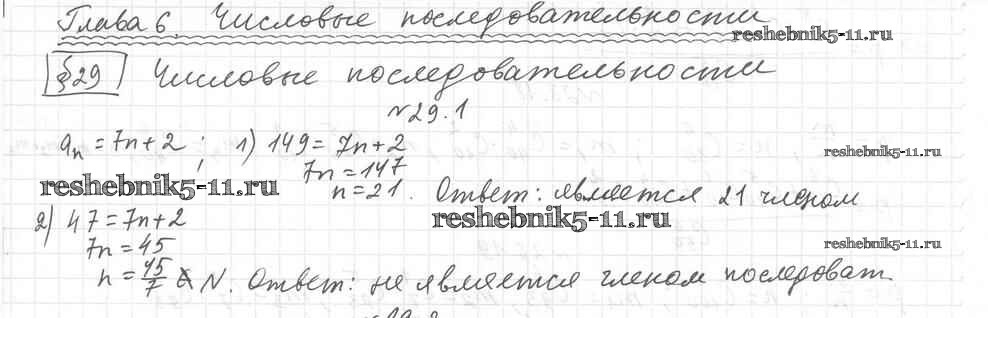 Глава 6. Числовые последовательности
reshebnik5-11.ru
§ 29 Числовые последовательности
№29.1
aₙ = 7n + 2 ; 1) 149 = 7n + 2
reshebnik5-11.ru
7n = 147
reshebnik5-11.ru
n = 21. Ответ: является 21 членом
reshebnik5-11.ru
2) 47 = 7n + 2
7n = 45
reshebnik5-11.ru
n = 45/7 ∉ N. Ответ: не является членом последоват.